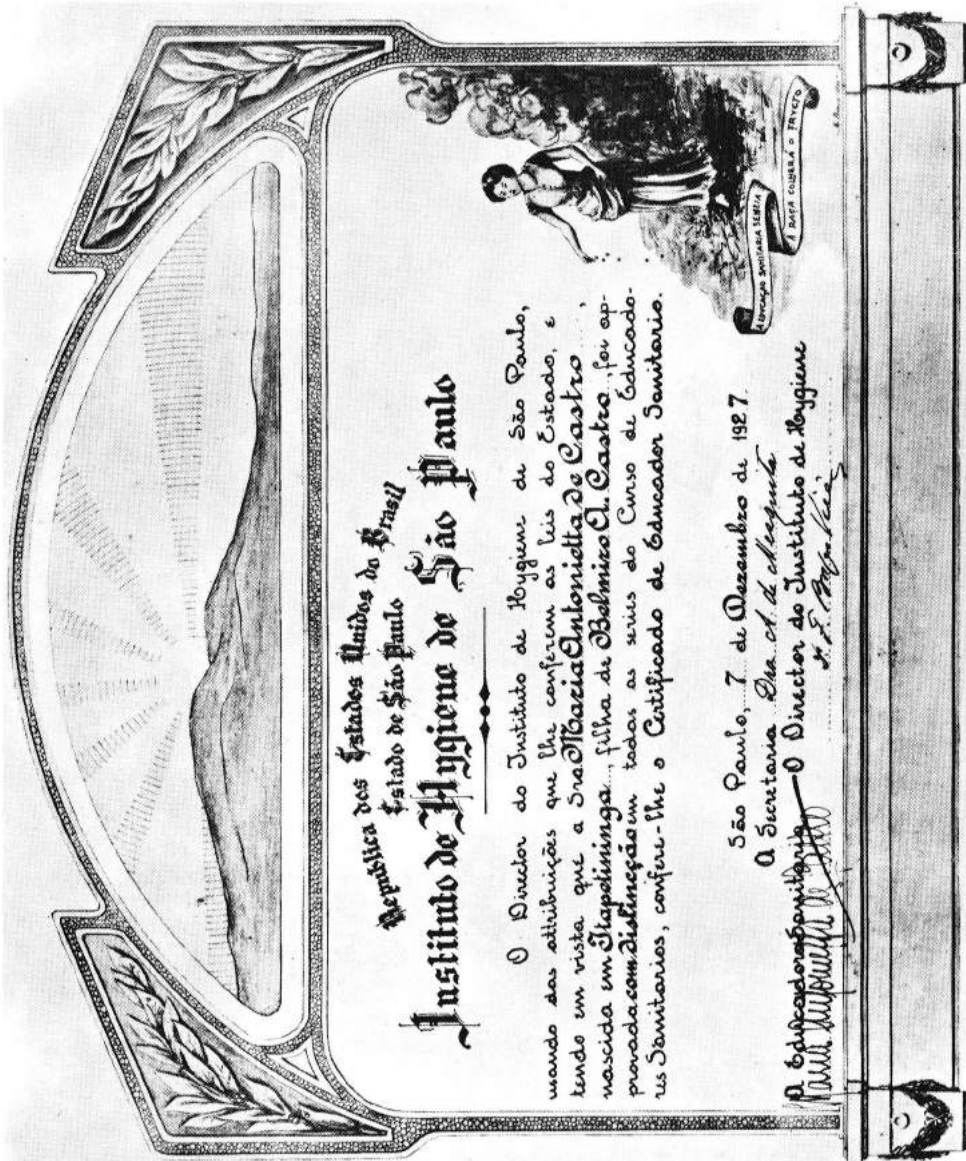 Republica dos Estados Unidos do Brasil
Estado de São Paulo
Instituto de Hygiene de São Paulo
O Director do Instituto de Hygiene de São Paulo,
usando das attribuições que lhe conferem as leis do Estado, e
tendo em vista que a Sra Maria Antonietta de Castro,
nascida em Itapetininga, filha de Belmiro A. Castro foi ap-
provada com distincção em todas as series do Curso de Educado-
res Sanitarios, confere-lhe o Certificado de Educador Sanitario.
São Paulo, 7 de Dezembro de 1927.
A Secretaria Dra. A. de
A Educadora Sanitaria O Director do Instituto de Hygiene
Maria Antonietta de Castro
A EDUCAÇÃO SANITARIA SEMEIA
A RAÇA COLHERÁ O FRVCTO